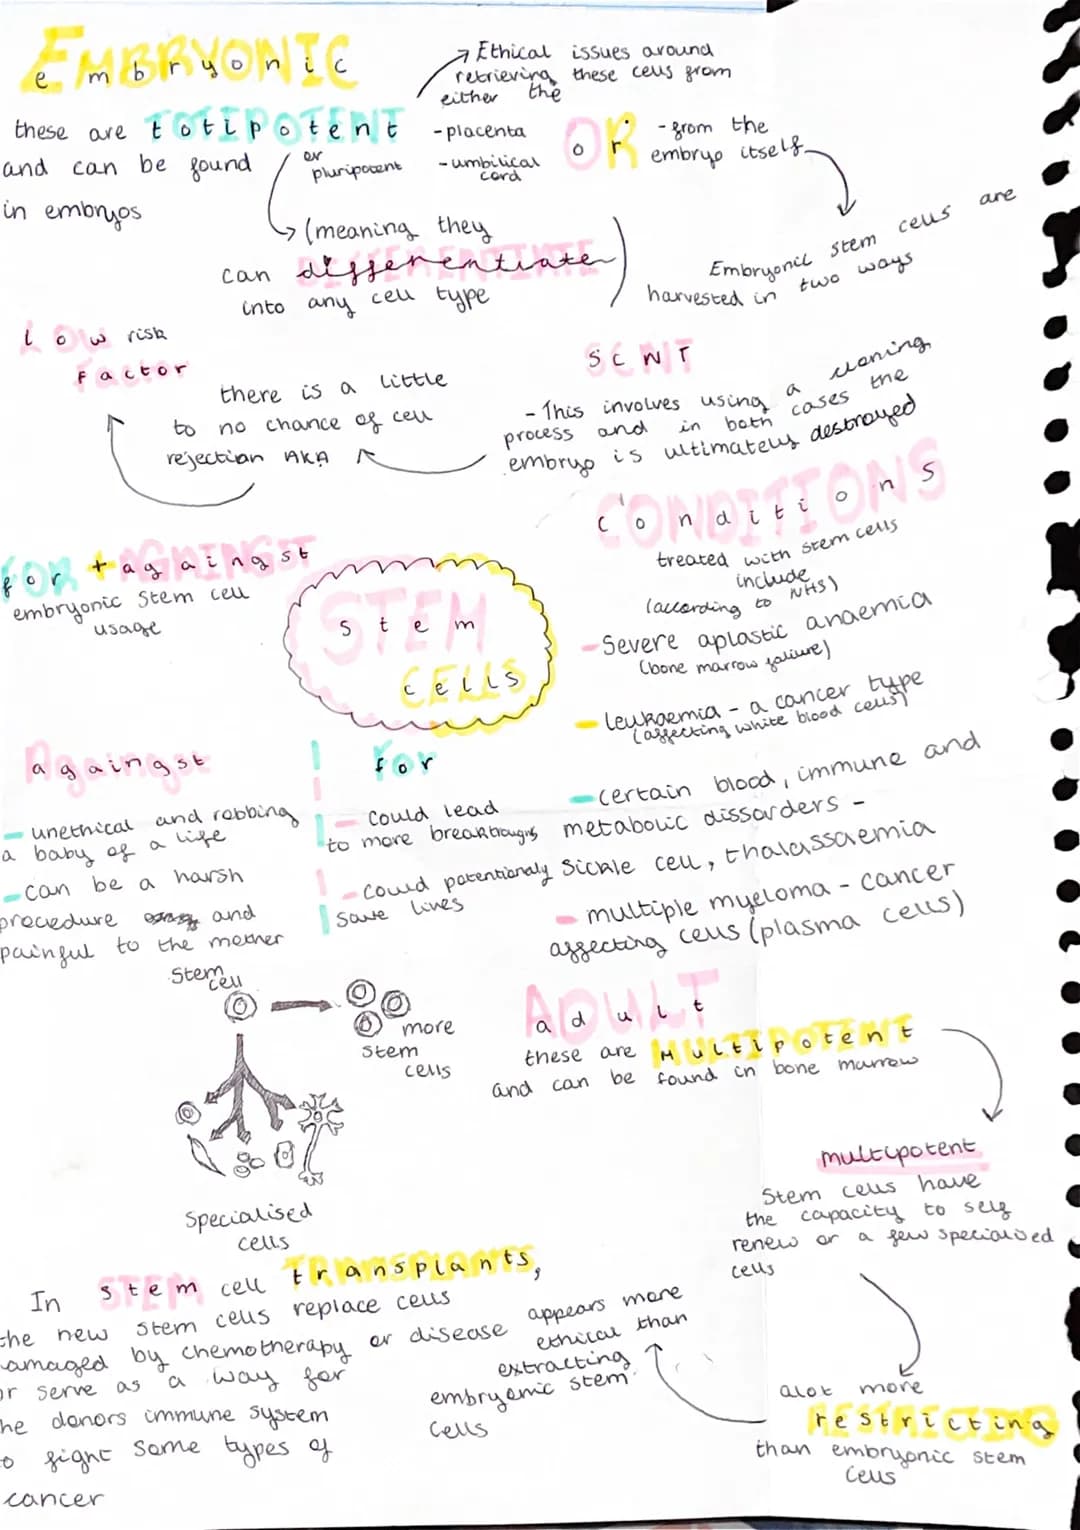 EMBRYONIC
these are totipotent
or pluripotent
and can be found
in embryos
Ethical issues around
retrieving these cells from
either the
-placenta
-umbilical
cord
OR
-from the
embryo itself
(meaning they
can differentiate)
into any cell type
Embryonic stem cells are
harvested in two ways
Low risk
Factor
there is a little
to no chance of cell
rejection AKA
SCNT
- This involves using a cloning
process and in both cases the
embryo is ultimately destroyed
CONDITIONS
treated with stem cells
include
(according to NHS)
- Severe aplastic anaemia
(bone marrow faliure)
- leukaemia - a cancer type
(affecting white blood cells)
- certain blood, immune and
metabolic dissorders -
Sickle cell, thalassaemia
- multiple myeloma - cancer
affecting cells (plasma cells)
for + againgst
embryonic stem cell
usage
STEM
CELLS
againgst
- unethical and robbing
a baby of a life
- can be a harsh
procedure and
painful to the mother
for
- could lead
to more breakthroughs
- could potentionaly
save lives
Stem
cell
more
stem
cells
Specialised
cells
ADULT
these are MULTIPOTENT
and can be found in bone marrow
multipotent
Stem cells have
the capacity to self
renew or a few specialised
cells
alot more
restricting
than embryonic stem
cells
appears more
ethical than
extracting
embryonic stem
cells
In stem cell transplants,
the new stem cells replace cells
amaged by chemotherapy or disease
or serve as a way for
he donors immune system
o fight some types of
cancer